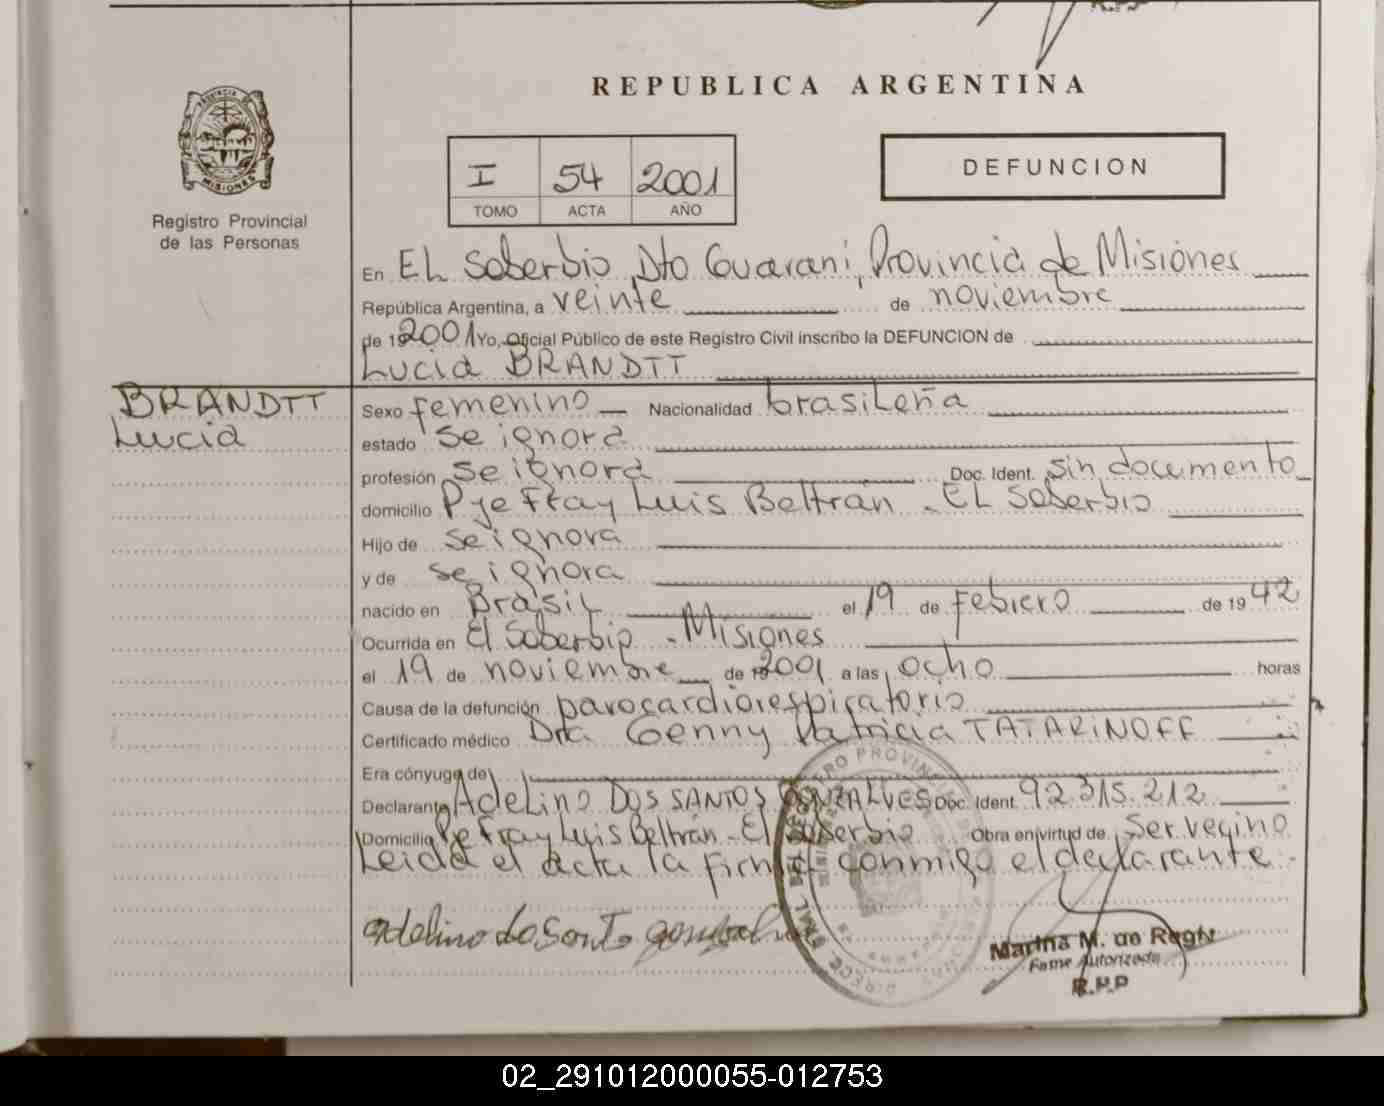 REPUBLICA ARGENTINA
PROVINCIA DE
MISIONES
Registro Provincial
de las Personas
I 54 2001
TOMO ACTA AÑO
DEFUNCION
En EL Soberbio, Dto Guarani, Provincia de Misiones
República Argentina, a veinte de noviembre
de 19 2001 Yo, Oficial Público de este Registro Civil inscribo la DEFUNCION de
Lucia BRANDTT
BRANDTT
Lucia
Sexo femenino Nacionalidad brasileña
estado se ignora
profesión se ignora Doc. Ident. sin documento
domicilio Pje Fray Luis Beltrán - EL Soberbio
Hijo de se ignora
y de se ignora
nacido en Brasil el 19 de febrero de 19 42
Ocurrida en El Soberbio - Misiones
el 19 de noviembre de 19 2001 a las ocho horas
Causa de la defunción parocardiorespiratorio
Certificado médico Dra Genny Patricia TATARINOFF
Era cónyuge de
Declarante Adelino DOS SANTOS GONZALVES Doc. Ident. 92.315.212
Domicilio Pje Fray Luis Beltrán - El Soberbio Obra en virtud de Ser vecino
Leida el acta la firma conmigo el declarante -
adelino do Santo
Marina M. de
Firme Autorizada
R.P.P
02_291012000055-012753